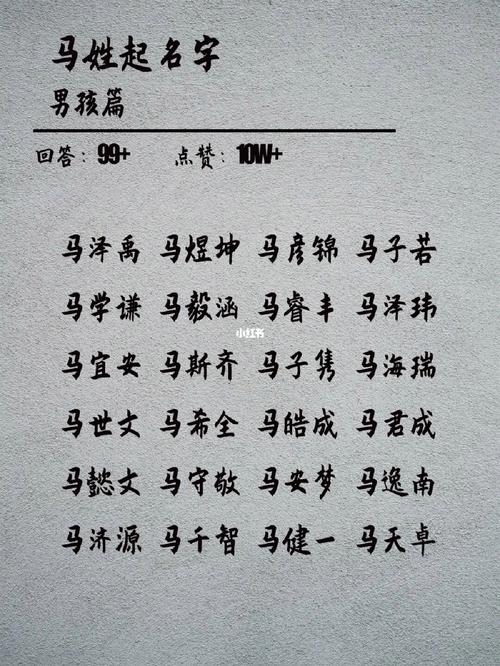 马姓起名字
男孩篇
回答：99+ 点赞：10W+
马泽禹 马煜坤 马彦锦 马子若
马学谦 马毅涵 马睿丰 马泽玮
小红书
马宜安 马斯齐 马子隽 马海瑞
马世文 马希全 马皓成 马君成
马懿文 马守敬 马安梦 马逸南
马济源 马千智 马健一 马天卓